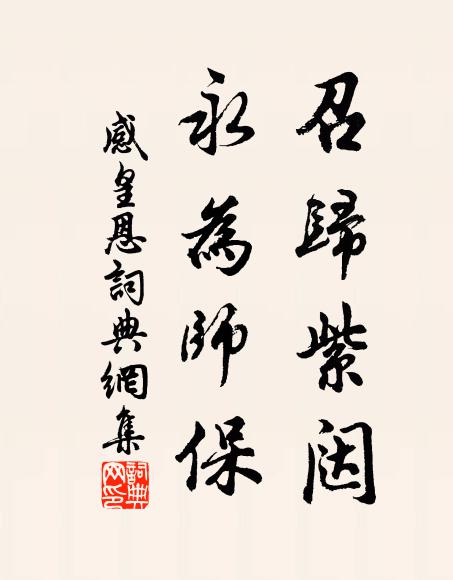 召歸紫闼
永為師保
感皇恩詞典網集
詞典
网印